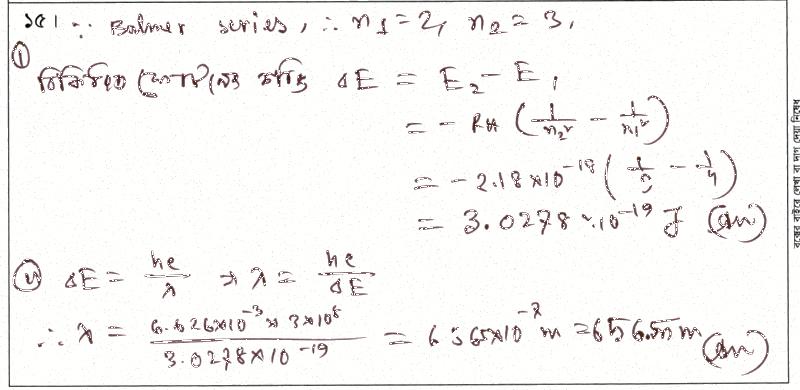 ১৫। ∵ Balmer series, ∴ n₁ = 2, n₂ = 3,
(i)
বিকিরিত ফোটনের শক্তি ΔE = E₂ − E₁
= − RH (1/n₂² − 1/n₁²)
= −2.18×10⁻¹⁸ (1/9 − 1/4)
= 3.0278×10⁻¹⁹ J (Ans)
(ii) ΔE = hc/λ ⇒ λ = hc/ΔE
∴ λ = 6.626×10⁻³ × 3×10⁸ / 3.0278×10⁻¹⁹ = 6.565×10⁻⁷ m = 656.5nm (Ans)
বক্সের বাইরে লেখা বা দাগ দেয়া নিষেধ